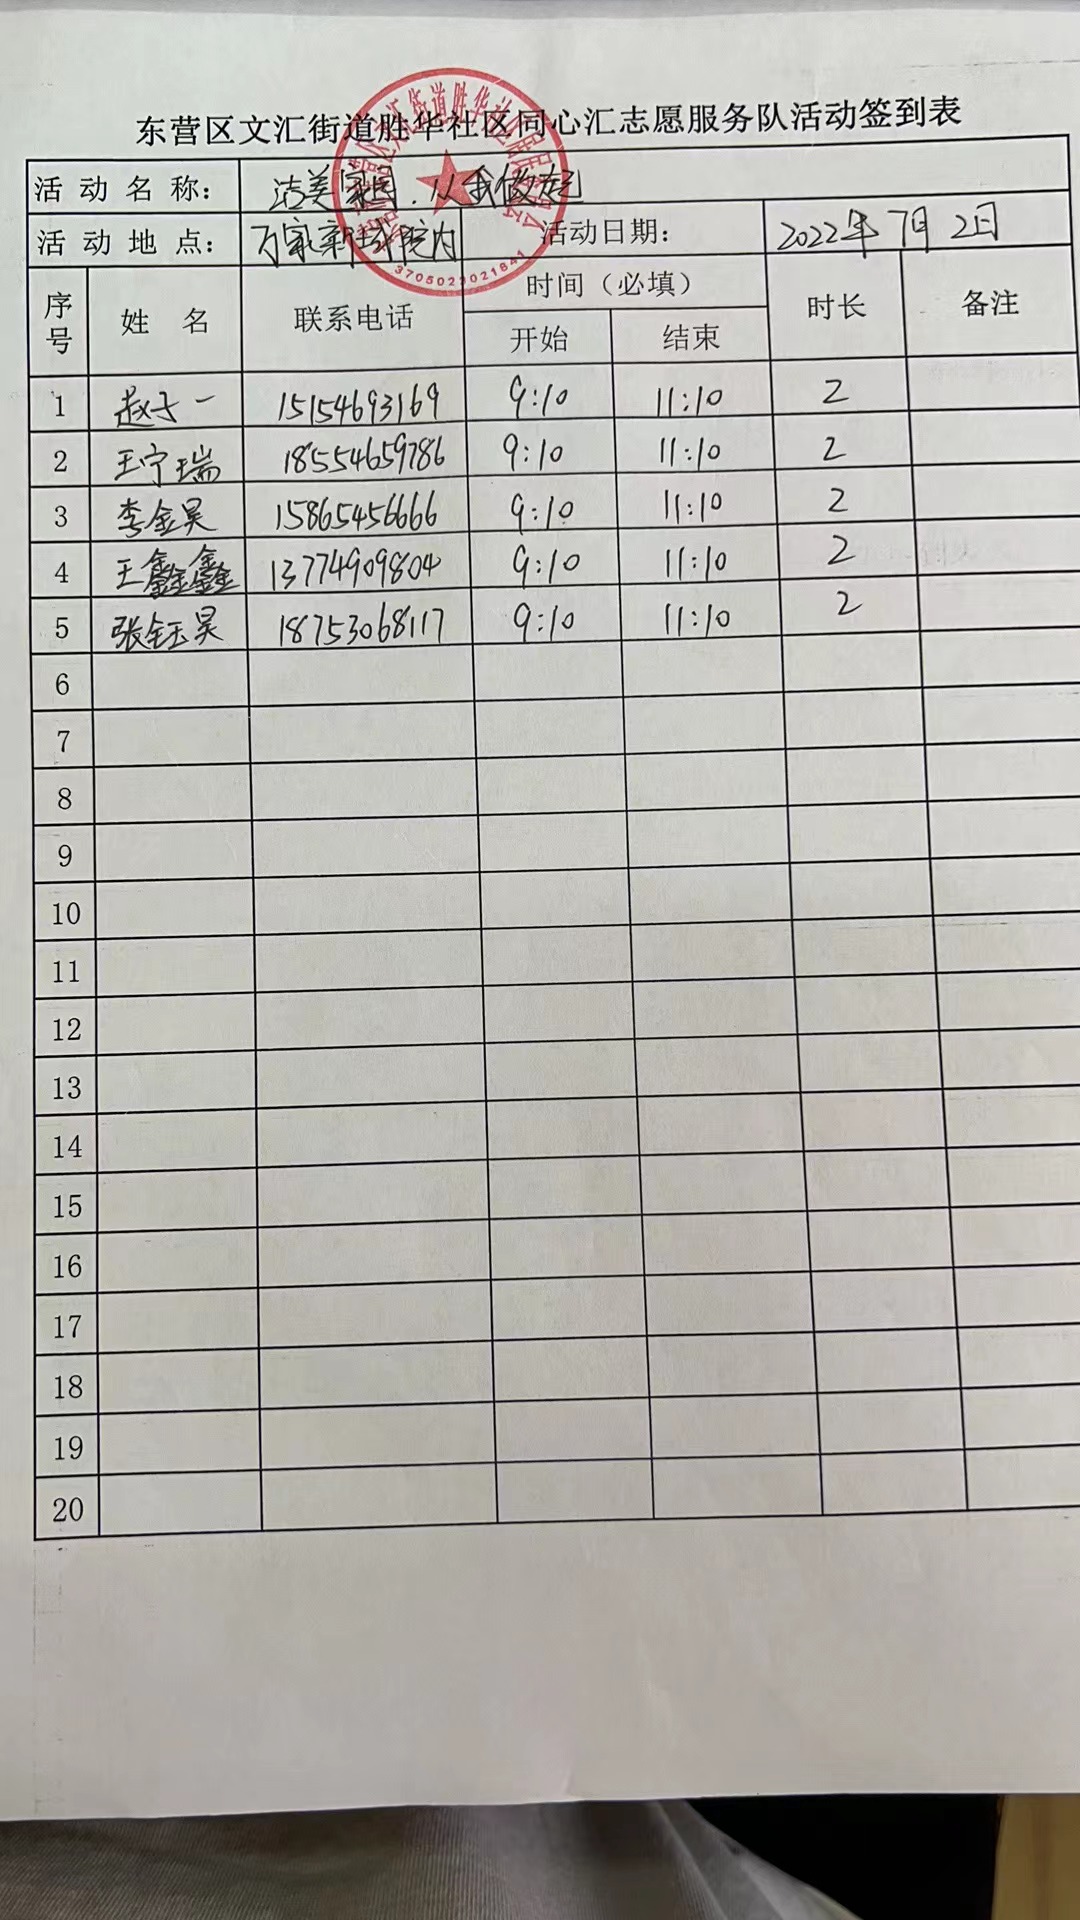 东营区文汇街道胜华社区同心汇志愿服务队活动签到表
活动名称： 洁美家园.从我做起
活动地点： 万家新城院内 活动日期： 2022年7月2日
序号 姓名 联系电话 时间（必填） 时长 备注
开始 结束
1 赵子一 15154693169 9:10 11:10 2
2 王宁瑞 18554659786 9:10 11:10 2
3 李金昊 15865456666 9:10 11:10 2
4 王鑫鑫 13774909804 9:10 11:10 2
5 张钰昊 18753068117 9:10 11:10 2
6
7
8
9
10
11
12
13
14
15
16
17
18
19
20
3705023021841